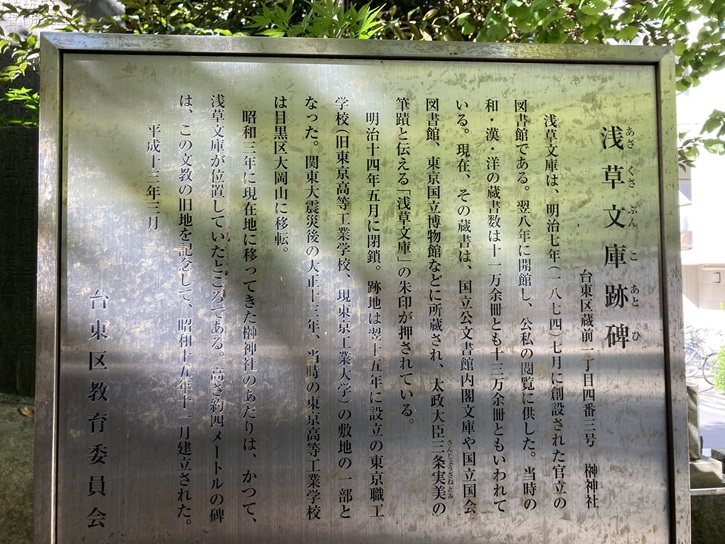 浅草文庫跡碑
あさくさぶんこあとひ
台東区蔵前一丁目四番三号 榊神社
浅草文庫は、明治七年(一八七四)七月に創設された官立の
図書館である。翌八年に開館し、公私の閲覧に供した。当時の
和・漢・洋の蔵書数は十一万余冊とも十三万余冊ともいわれて
いる。現在、その蔵書は、国立公文書館内閣文庫や国立国会
図書館、東京国立博物館などに所蔵され、太政大臣三条実美の
さんじょうさねとみ
筆蹟と伝える「浅草文庫」の朱印が押されている。
明治十四年五月に閉鎖。跡地は翌十五年に設立の東京職工
学校(旧東京高等工業学校、現東京工業大学)の敷地の一部と
なった。関東大震災後の大正十三年、当時の東京高等工業学校
は目黒区大岡山に移転。
昭和三年に現在地に移ってきた榊神社のあたりは、かつて、
浅草文庫が位置していたところである。高さ約四メートルの碑
は、この文教の旧地を記念して、昭和十五年十一月建立された。
平成十三年三月
台東区教育委員会